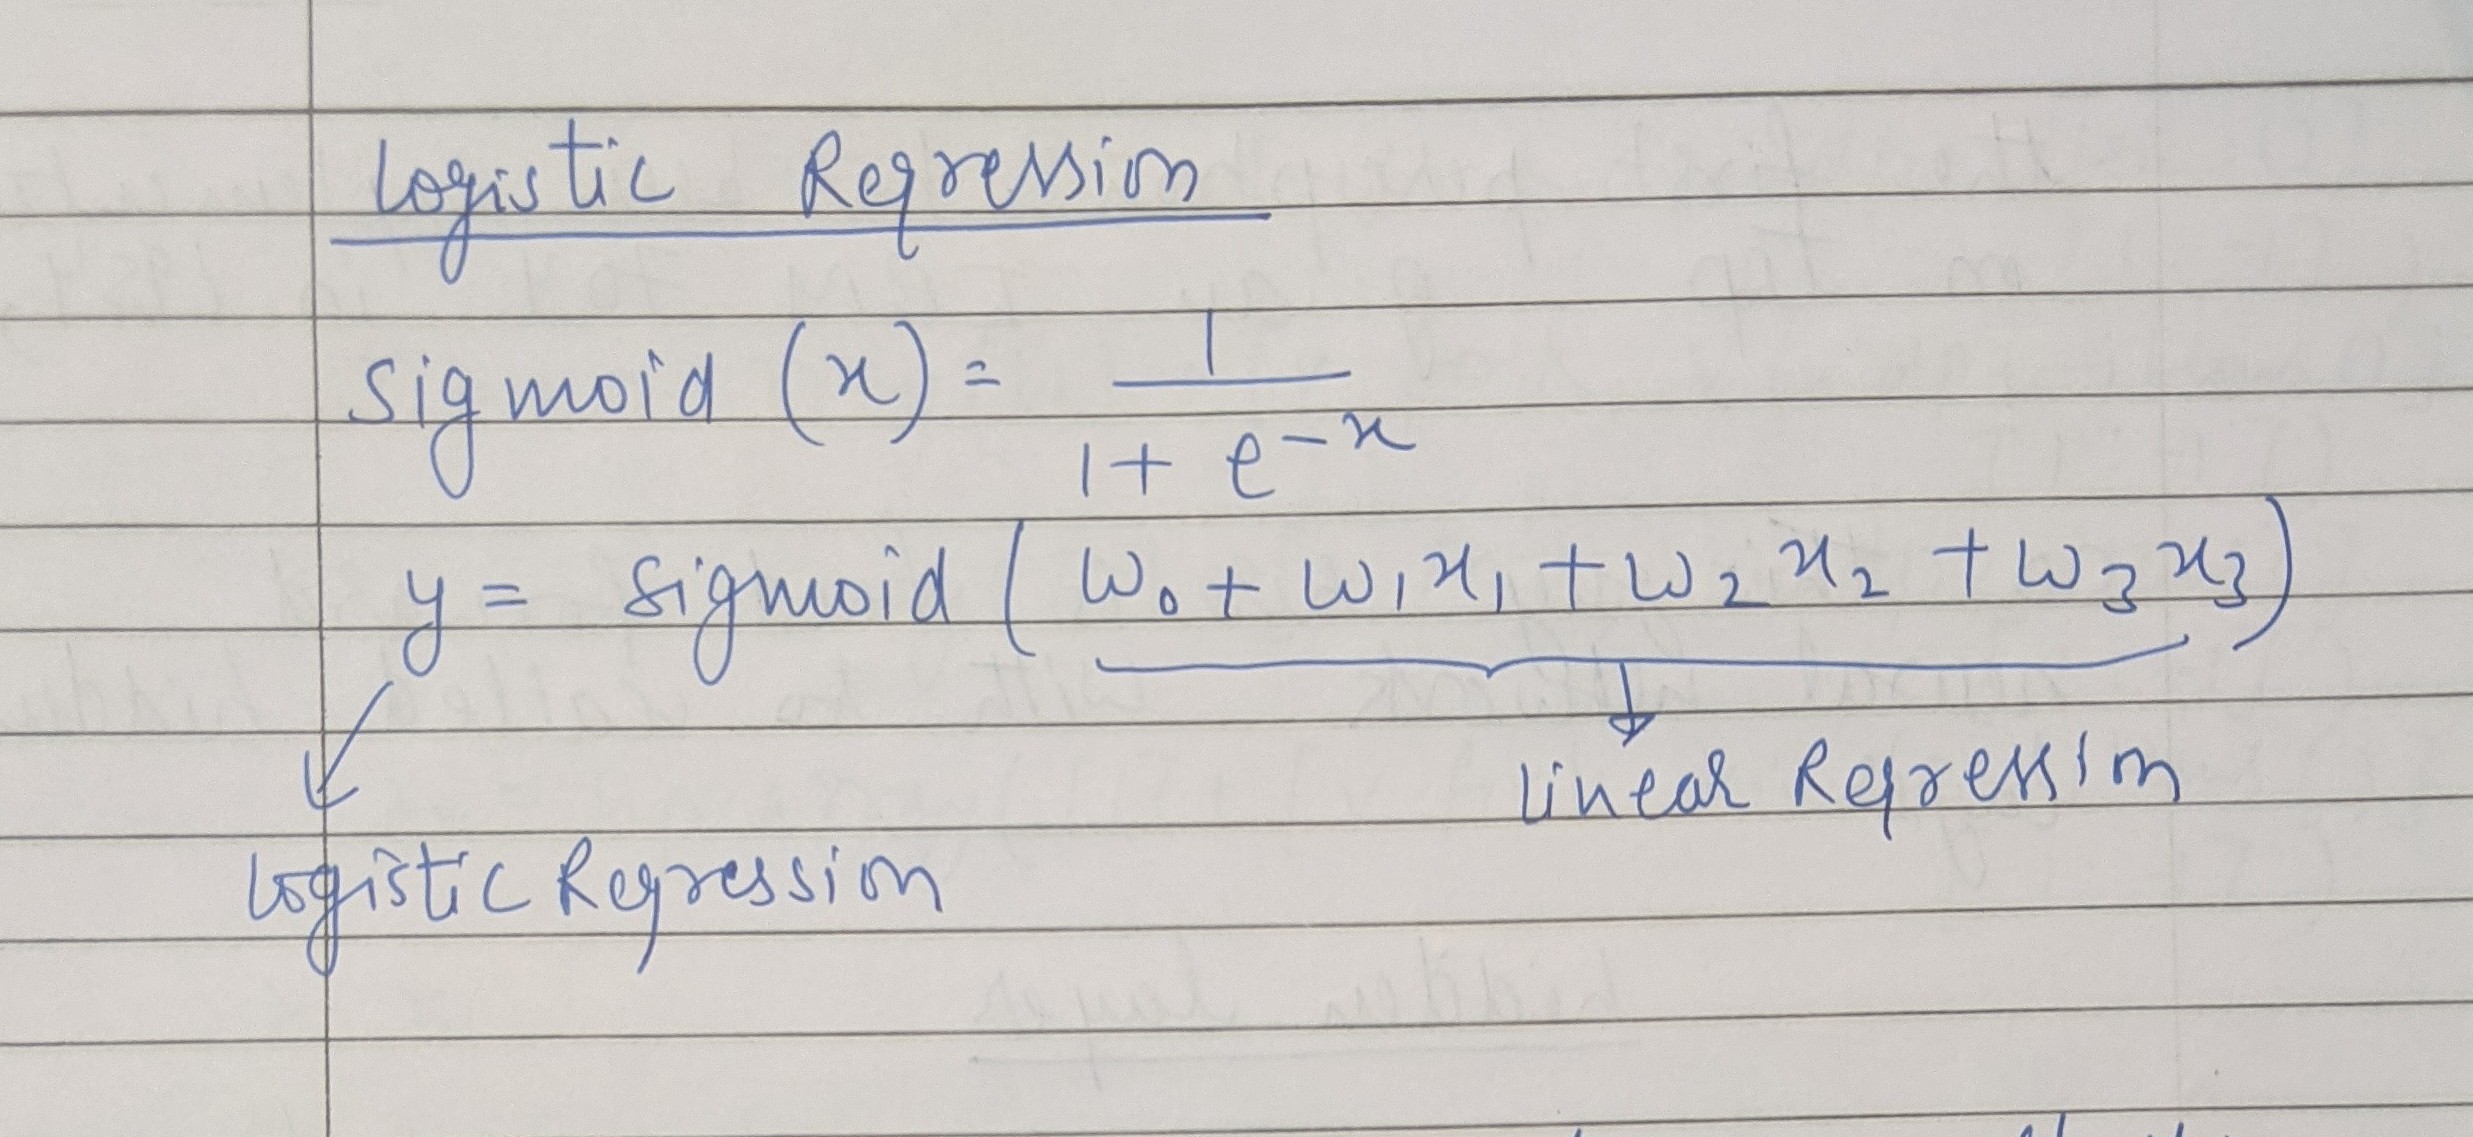 Logistic Regression
sigmoid (x) = 1 / 1 + e^-x
y = sigmoid ( w₀ + w₁x₁ + w₂x₂ + w₃x₃ )
Linear Regression
Logistic Regression
hidden layer